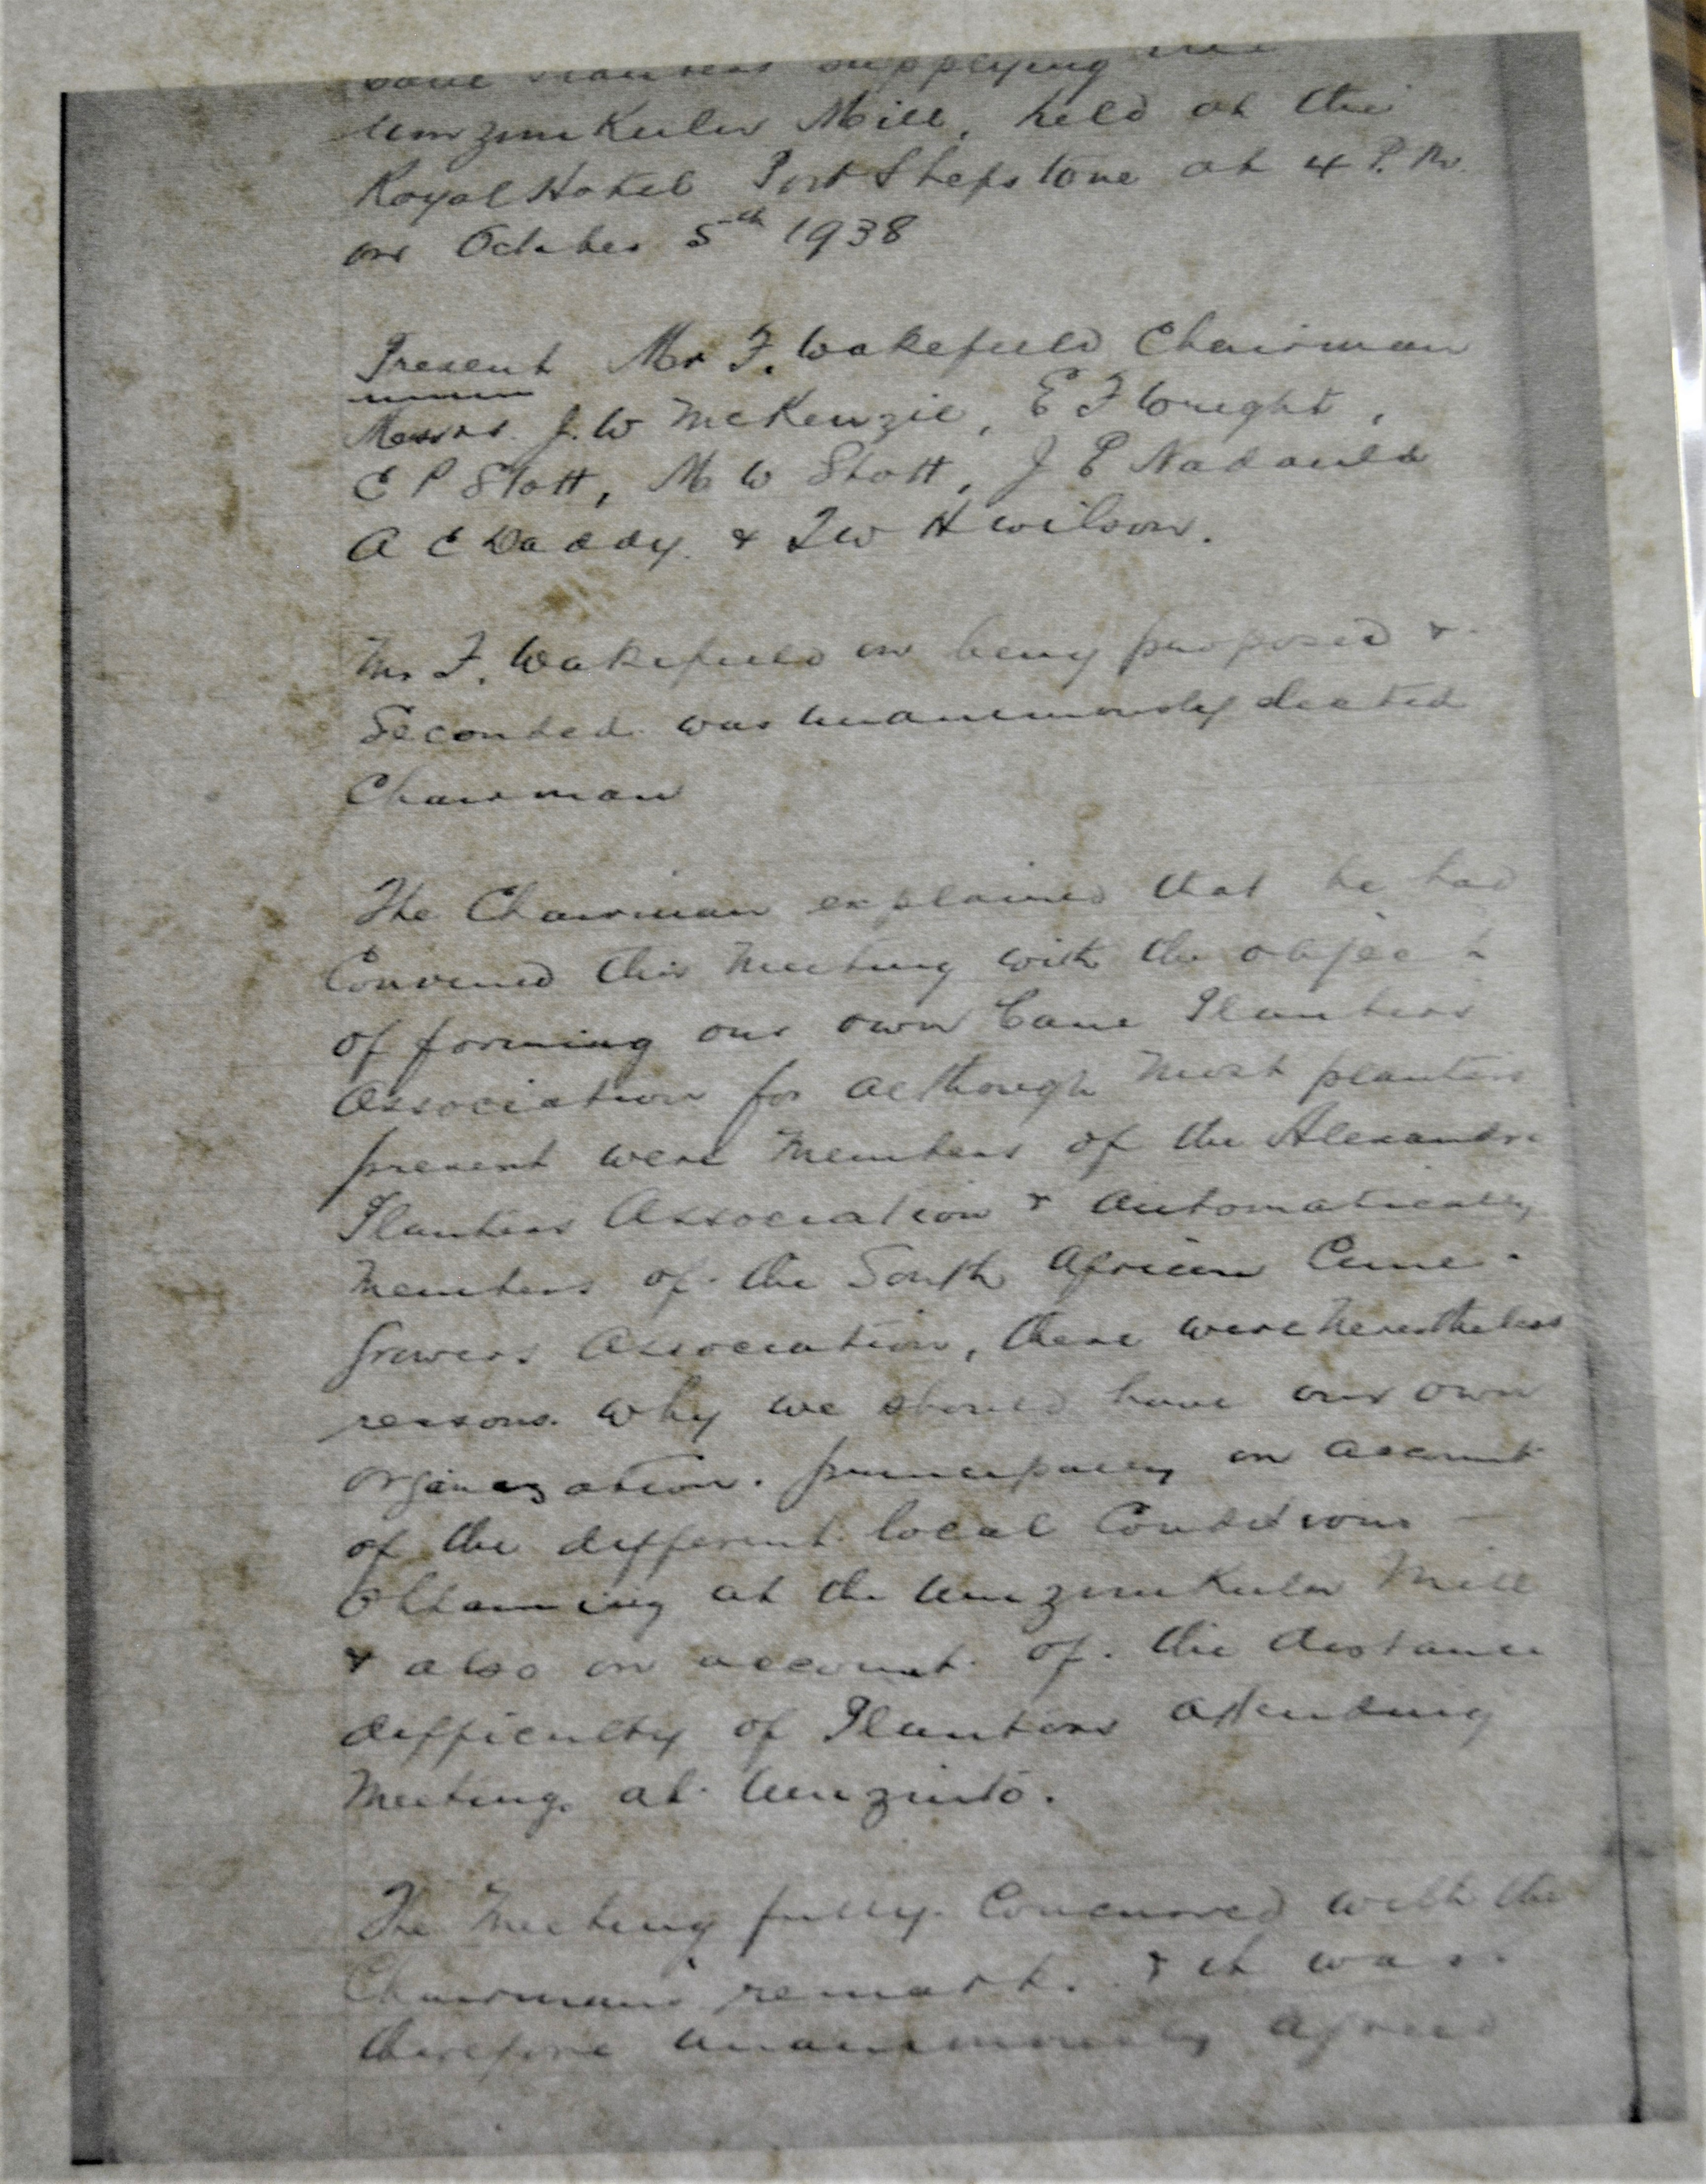 Cane Planters supplying the
Umzimkulu Mill, held at the
Royal Hotel Port Shepstone at 4 P.M.
on October 5th 1938
Present Mr F. Wakefield Chairman
Messrs. J. W McKenzie, E F Wright,
C P Stott, M W Stott, J E Nadauld
A C Daddy. & T W H Wilson.
Mr F. Wakefield on being proposed &
Seconded was unanimously elected
Chairman
The Chairman explained that he had
Convened this Meeting with the object
of forming our own Cane Planters
Association for although most planters
present were Members of the Alexandra
Planters Association & automatically
Members of the South African Cane
Growers Association, there were nevertheless
reasons why we should have our own
organization. principally on account
of the different local Conditions
Obtaining at the Umzimkulu Mill
& also on account of the distance
difficulty of Planters attending
Meetings at Umzinto.
The Meeting fully Concurred with the
Chairman's remarks. & it was
therefore unanimously agreed